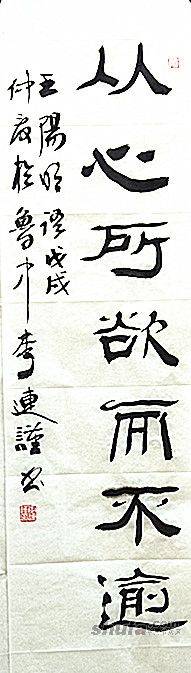 从心所欲而不逾
王阳明语戊戌
仲夏於鲁中李连谨书